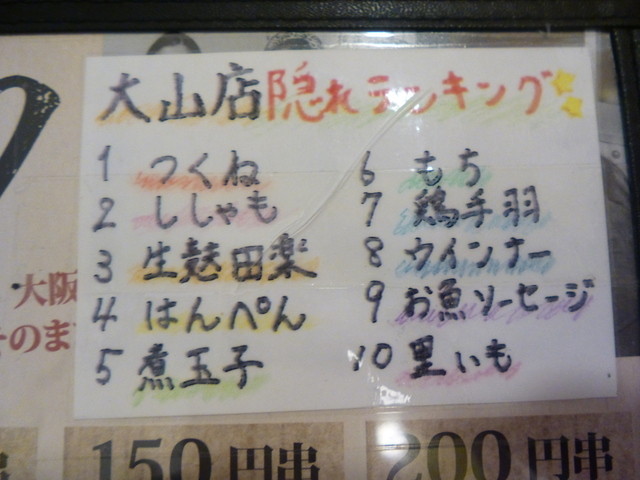 大山店隠れランキング
1 つくね
2 ししゃも
3 生麩田楽
4 はんぺん
5 煮玉子
6 もち
7 鶏手羽
8 ウインナー
9 お魚ソーセージ
10 里いも
大阪
そのま
150円串
200円串